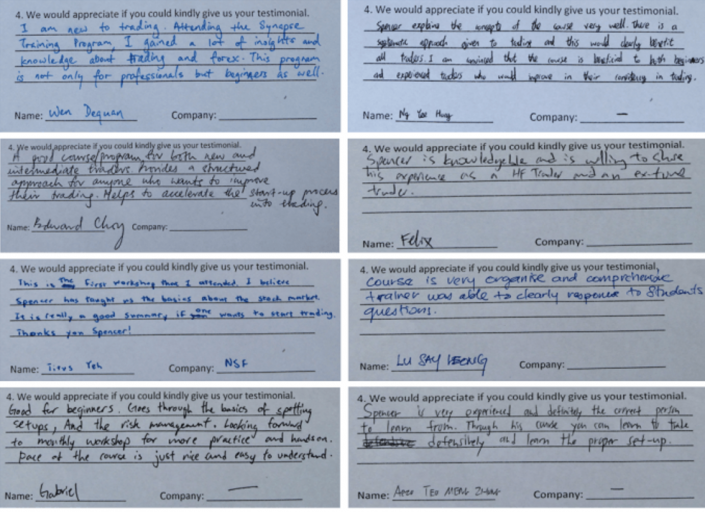 4. We would appreciate if you could kindly give us your testimonial.
I am new to trading. Attending the Synapse
Training Program, I gained a lot of insights and
knowledge about trading and forex. This program
is not only for professionals but beginners as well.
Name: Wen Dequan Company:
4. We would appreciate if you could kindly give us your testimonial.
Spenser explains the concepts of the course very well. There is a
systematic approach given to trading and this would clearly benefit
all traders. I am convinced that the course is beneficial to both beginners
and experienced traders who would improve in their consistency in trading.
Name: Ng Company: —
4. We would appreciate if you could kindly give us your testimonial.
A good course/program for both new and
intermediate traders. Provides a structured
approach for anyone who wants to improve
their trading. Helps to accelerate the start-up process
into trading.
Name: Edward Choy Company:
4. We would appreciate if you could kindly give us your testimonial.
Spencer is knowledgeable and is willing to share
his experience as a HF Trader and an ex-fund
trader.
Name: Felix Company:
4. We would appreciate if you could kindly give us your testimonial.
This is the first workshop that I attended. I believe
Spenser has taught us the basics about the stock market.
It is really a good summary if one wants to start trading.
Thanks you Spenser!
Name: Titus Yeh Company: NSF
4. We would appreciate if you could kindly give us your testimonial,
Course is very organise and comprehensive
trainer was able to clearly response to students
questions.
Name: LU SAY LEONG Company:
4. We would appreciate if you could kindly give us your testimonial.
Good for beginners. Goes through the basics of spotting
setups, And the risk management. Looking forward
to monthly workshop for more practice and handson.
Pace of the course is just nice and easy to understand.
Name: Gabriel Company: —
4. We would appreciate if you could kindly give us your testimonial.
Spenser is very experienced and definitely the correct person
to learn from. Through his course you can learn to trade
defensively and learn the proper set-up.
Name: TEO MENG Company: —